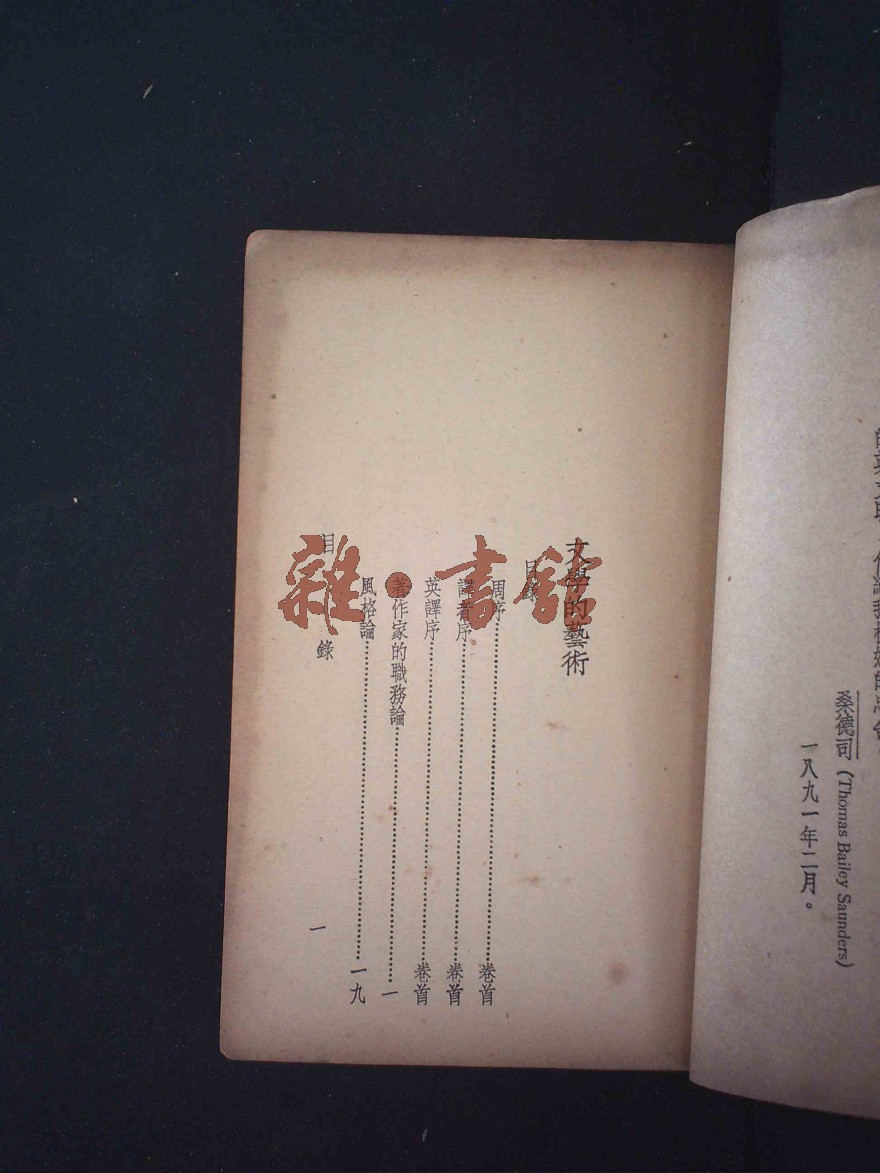 桑德司（Thomas Bailey Saunders）
一八九一年二月。
文學的藝術
目錄
周序……卷首
譯者序……卷首
英譯序……卷首
著作家的職務論……一
風格論……一九
目錄
一
雜·書館